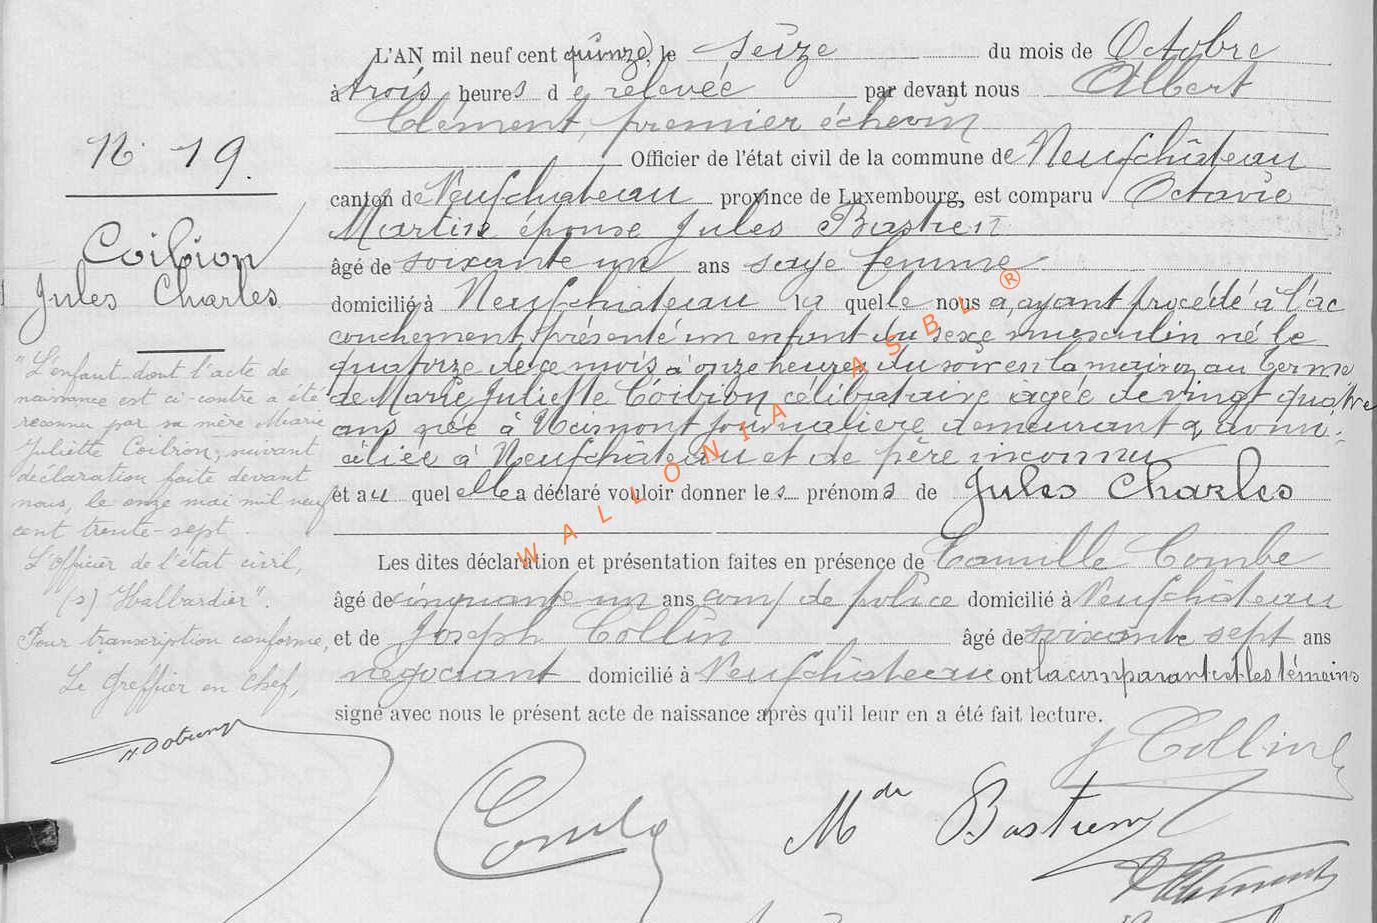 L'AN mil neuf cent quinze, le seize du mois de Octobre
à trois heures de relevée par devant nous Albert
Clément, premier échevin
Officier de l'état civil de la commune de Neufchâteau
canton de Neufchateau province de Luxembourg, est comparu Octavie
Martin épouse Jules Bastien
âgé de soixante un ans sage femme
domicilié à Neufchateau laquelle nous a, ayant procédé à l'ac
couchement, présenté un enfant du sexe masculin né le
quatorze de ce mois à onze heures du soir en la maison au Terme
de Marie Juliette Coibion célibataire agée de vingt quatre
ans née à journalière demeurant &
à Neufchâteau et de père inconnu
et auquel elle a déclaré vouloir donner les prénoms de Jules Charles
Les dites déclaration et présentation faites en présence de Camille Combe
âgé de cinquante un ans com, de police domicilié à Neufchâteau
et de Joseph Collin âgé de soixante sept ans
négociant domicilié à Neufchâteau ont la comparante et les témoins
signé avec nous le présent acte de naissance après qu'il leur en a été fait lecture.
N. 19.
Coibion
Jules Charles
"L'enfant dont l'acte de
naissance est ci-contre a été
reconnu par sa mère Marie
Juliette Coibion, suivant
déclaration faite devant
nous, le onze mai mil neuf
cent trente-sept.
L'Officier de l'état civil,
(s) Halbardier".
Pour transcription conforme,
Le Greffier en chef,
J Collin
Combe
Mde Bastien
Clément
WALLONIA ASBL ®